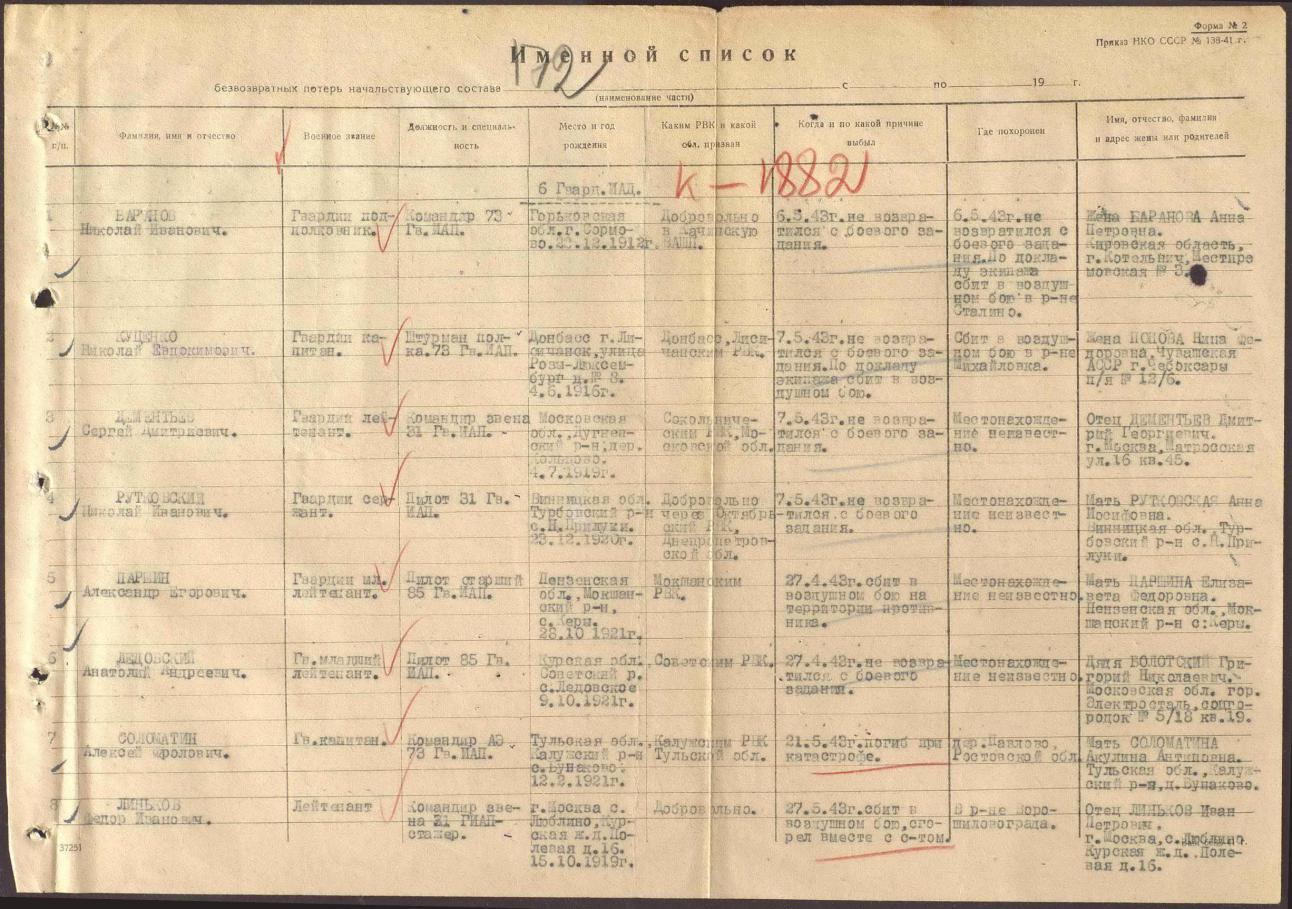 Форма № 2
Приказ НКО СССР № 138-41 г.
Именной список
172
безвозвратных потерь начальствующего состава с по 19 г.
(наименование части)
№№ п/п.
Фамилия, имя и отчество
Военное звание
Должность и специаль-
ность
Место и год
рождения
Каким РВК и какой
обл. призван
Когда и по какой причине
выбыл
Где похоронен
Имя, отчество, фамилия
и адрес жены или родителей
6 Гвард.ИАД.
К-1882
1
БАРАНОВ
Николай Иванович.
Гвардии под-
полковник.
Командир 73
Гв.ИАП.
Горьковская
обл.г. Сормо-
во. 12.1912г.
Добровольно
в Качинскую
ВАШП.
6.5.43г.не возвра-
тился с боевого за-
дания.
6.5.43г.не
возвратился с
боевого зада-
ния.По докла-
ду экипажа
сбит в воздуш-
ном бою в р-не
Сталино.
Жена БАРАНОВА Анна
Петровна.
Кировская область,
г.Котельнич,Шестире
мовская № 3.
2
КУЦЕНКО
Николай Евдокимович.
Гвардии ка-
питан.
Штурман пол-
ка.73 Гв.ИАП.
Донбасс г.Ли-
сичанск,улица
Розы-Люксем-
бург д.№ 8.
4.6.1916г.
Донбасс,Лиси-
чанским РВК.
7.5.43г.не возвра-
тился с боевого за-
дания.По докладу
экипажа сбит в воз-
душном бою.
Сбит в воздуш-
ном бою в р-не
Михайловка.
Жена ПОПОВА Нина Фе-
доровна,Чувашская
АССР г.Чебоксары
п/я № 12/6.
3
ДЕМЕНТЬЕВ
Сергей Дмитриевич.
Гвардии лей-
тенант.
Командир звена
31 Гв.ИАП.
Московская
обл.,Лугнен-
ский р-н,дер.
Кольцово.
4.7.1919г.
Сокольниче-
ский РВК,Мо-
сковской обл.
7.5.43г.не возвра-
тился с боевого за-
дания.
Местонахожде-
ние неизвест-
но.
Отец ДЕМЕНТЬЕВ Дмит-
рий Георгиевич.
г.Москва,Матросская
ул.16 кв.45.
4
РУТКОВСКИЙ
Николай Иванович.
Гвардии сер-
жант.
Пилот 31 Гв.
ИАП.
Винницкая обл.
Турбовский р-н
с.Н.Прилуки.
23.12.1920г.
Добровольно
через Октябрь-
ский РВК,
Днепропетров-
ской обл.
7.5.43г.не возвра-
тился с боевого
задания.
Местонахожде-
ние неизвест-
но.
Мать РУТКОВСКАЯ Анна
Иосифовна.
Винницкая обл.,Тур-
бовский р-н с.Н.При-
луки.
5
ПАРШИН
Александр Егорович.
Гвардии мл.
лейтенант.
Пилот старший
85 Гв.ИАП.
Пензенская
обл.,Мокшан-
ский р-н,
с.Керы.
23.10 1921г.
Мокшанским
РВК.
27.4.43г.сбит в
воздушном бою на
территории против-
ника.
Местонахожде-
ние неизвестно.
Мать ПАРШИНА Елиза-
вета Федоровна.
Пензенская обл.,Мок-
шанский р-н с.Керы.
6
ЛЕДОВСКИЙ
Анатолий Андреевич.
Гв.младший
лейтенант.
Пилот 85 Гв.
ИАП.
Курская обл.
Советский р.
с.Ледовское
9.10.1921г.
Советским РВК.
27.4.43г.не возвра-
тился с боевого
задания.
Местонахожде-
ние неизвестно.
Дядя БОЛОТСКИЙ Гри-
горий Николаевич.
Московская обл. гор.
Электросталь,соцго-
родок № 5/18 кв.19.
7
СОЛОМАТИН
Алексей Фролович.
Гв.капитан.
Командир АЭ
73 Гв.ИАП.
Тульская обл.
Калужский р-н
с.Бунаково.
12.2.1921г.
Калужским РВК
Тульской обл.
21.5.43г.погиб при
катастрофе.
дер.Павлово,
Ростовской обл.
Мать СОЛОМАТИНА
Акулина Антиповна.
Тульская обл.,Калуж-
ский р-н,д.Бунаково.
8
ЛИНЬКОВ
Федор Иванович.
Лейтенант
Командир зве-
на 31 ГИАП-
стажер.
г.Москва с.
Люблино,Кур-
ская ж.д.По-
левая д.16.
15.10.1919г.
Добровольно.
27.5.43г.сбит в
воздушном бою,сго-
рел вместе с с-том.
В р-не Воро-
шиловограда.
Отец ЛИНЬКОВ Иван
Петрович.
г.Москва,с.Люблино
Курская ж.д.,Поле-
вая д.16.
37251